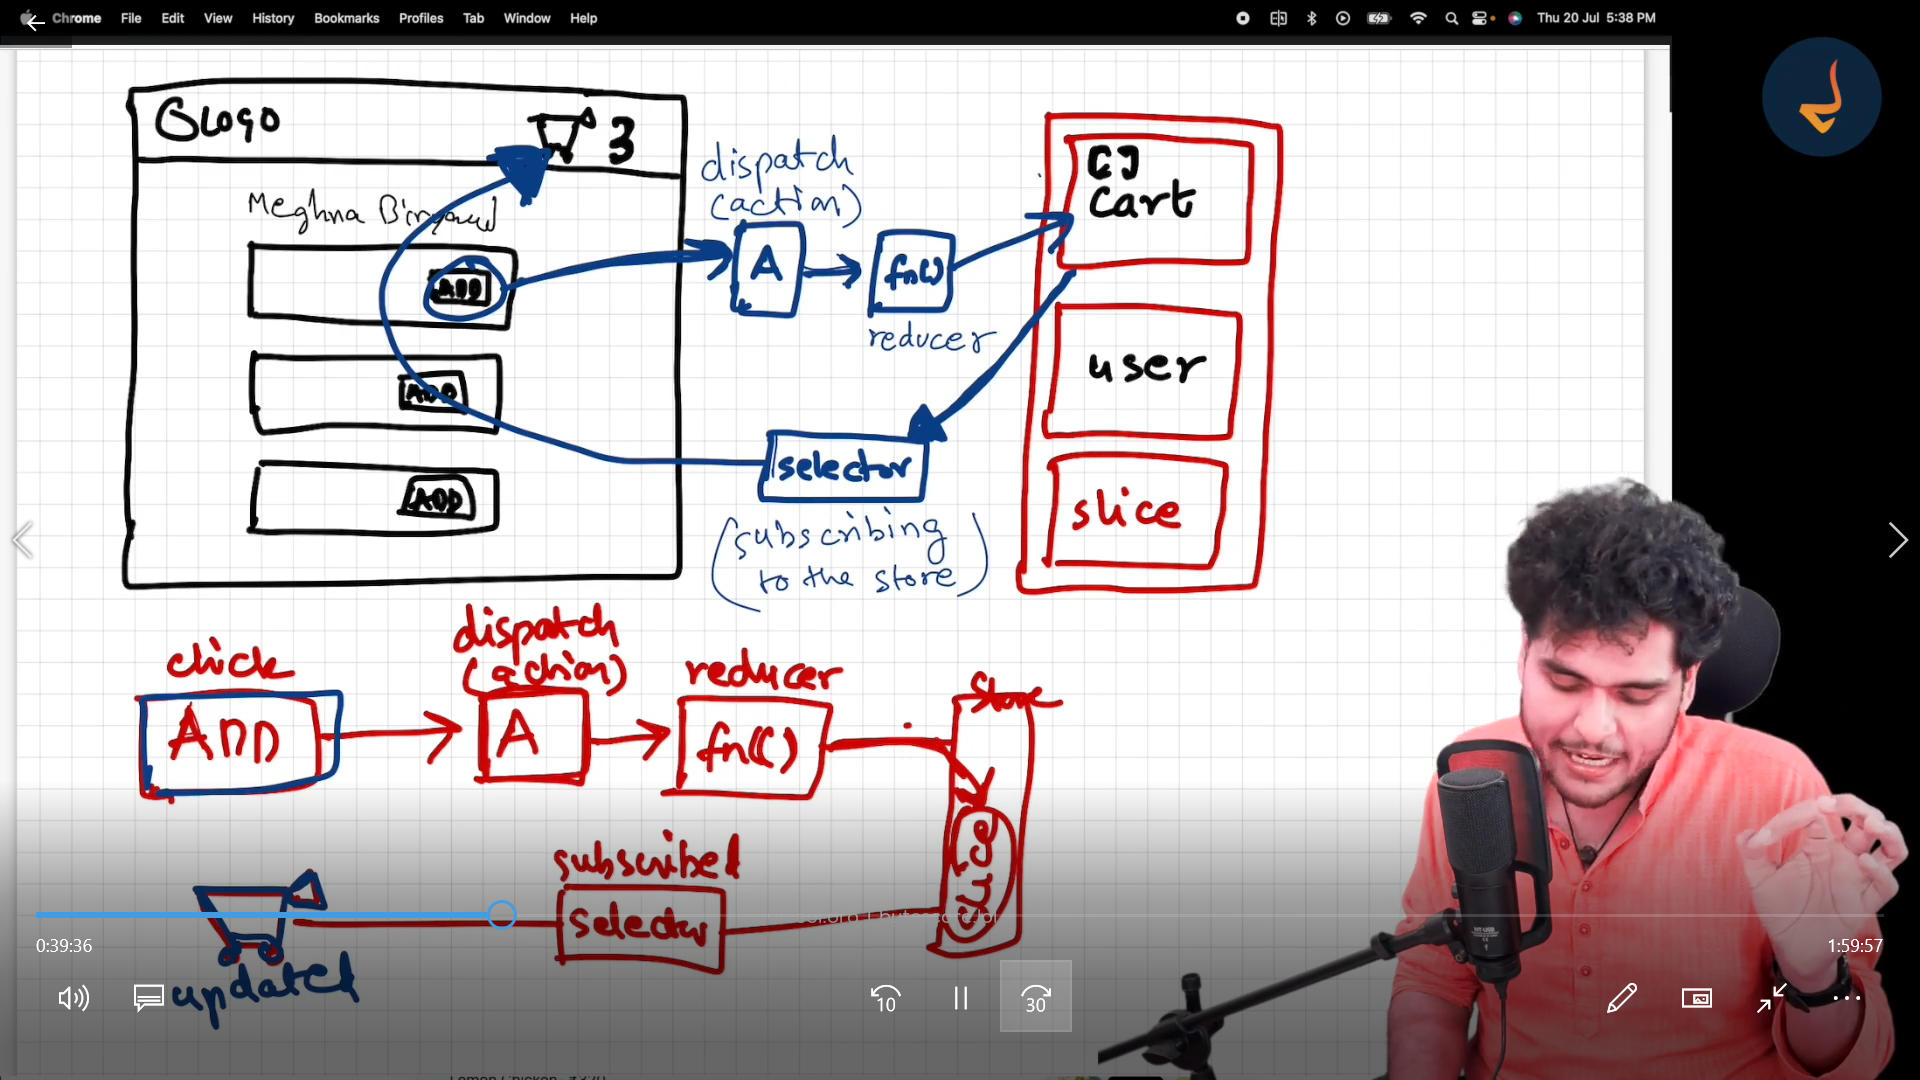 Chrome File Edit View History Bookmarks Profiles Tab Window Help
Thu 20 Jul 5:38 PM
Logo
3
Meghna
ADD
ADD
ADD
dispatch
(action)
A
fn()
reducer
selector
(subscribing
to the store)
[]
Cart
user
slice
click
ADD
dispatch
(action)
A
reducer
fn()
Store
slice
subscribed
selector
updated
0:39:36
1:59:57
10
30